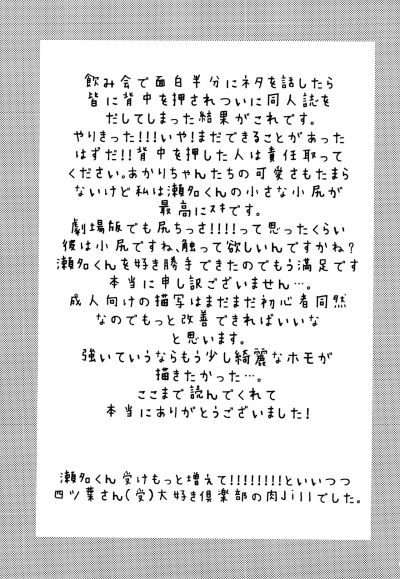 飲み会で面白半分にネタを話したら
皆に背中を押されついに同人誌を
だしてしまった結果がこれです。
やりきった!!!いや!まだできることがあった
はずだ!!背中を押した人は責任取って
ください。あかりちゃんたちの可愛さもたまら
ないけど私は瀬名くんの小さな小尻が
最高にｽｷです。
劇場版でも尻ちっさ!!!!って思ったくらい
彼は小尻ですね、触って欲しいんですかね?
瀬名くんを好き勝手できたのでもう満足です
本当に申し訳ございません…。
成人向けの描写はまだまだ初心者同然
なのでもっと改善できればいいな
と思います。
強いていうならもう少し綺麗なホモが
描きたかった…。
ここまで読んでくれて
本当にありがとうございました!
瀬名くん受けもっと増えて!!!!!!!!といいつつ
四ツ葉さん(受)大好き倶楽部の肉Jillでした。